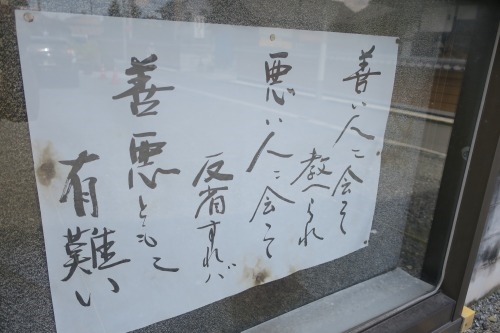 善い人に会って
教へられ
悪い人に会って
反省すれば
善悪ともに
有難い